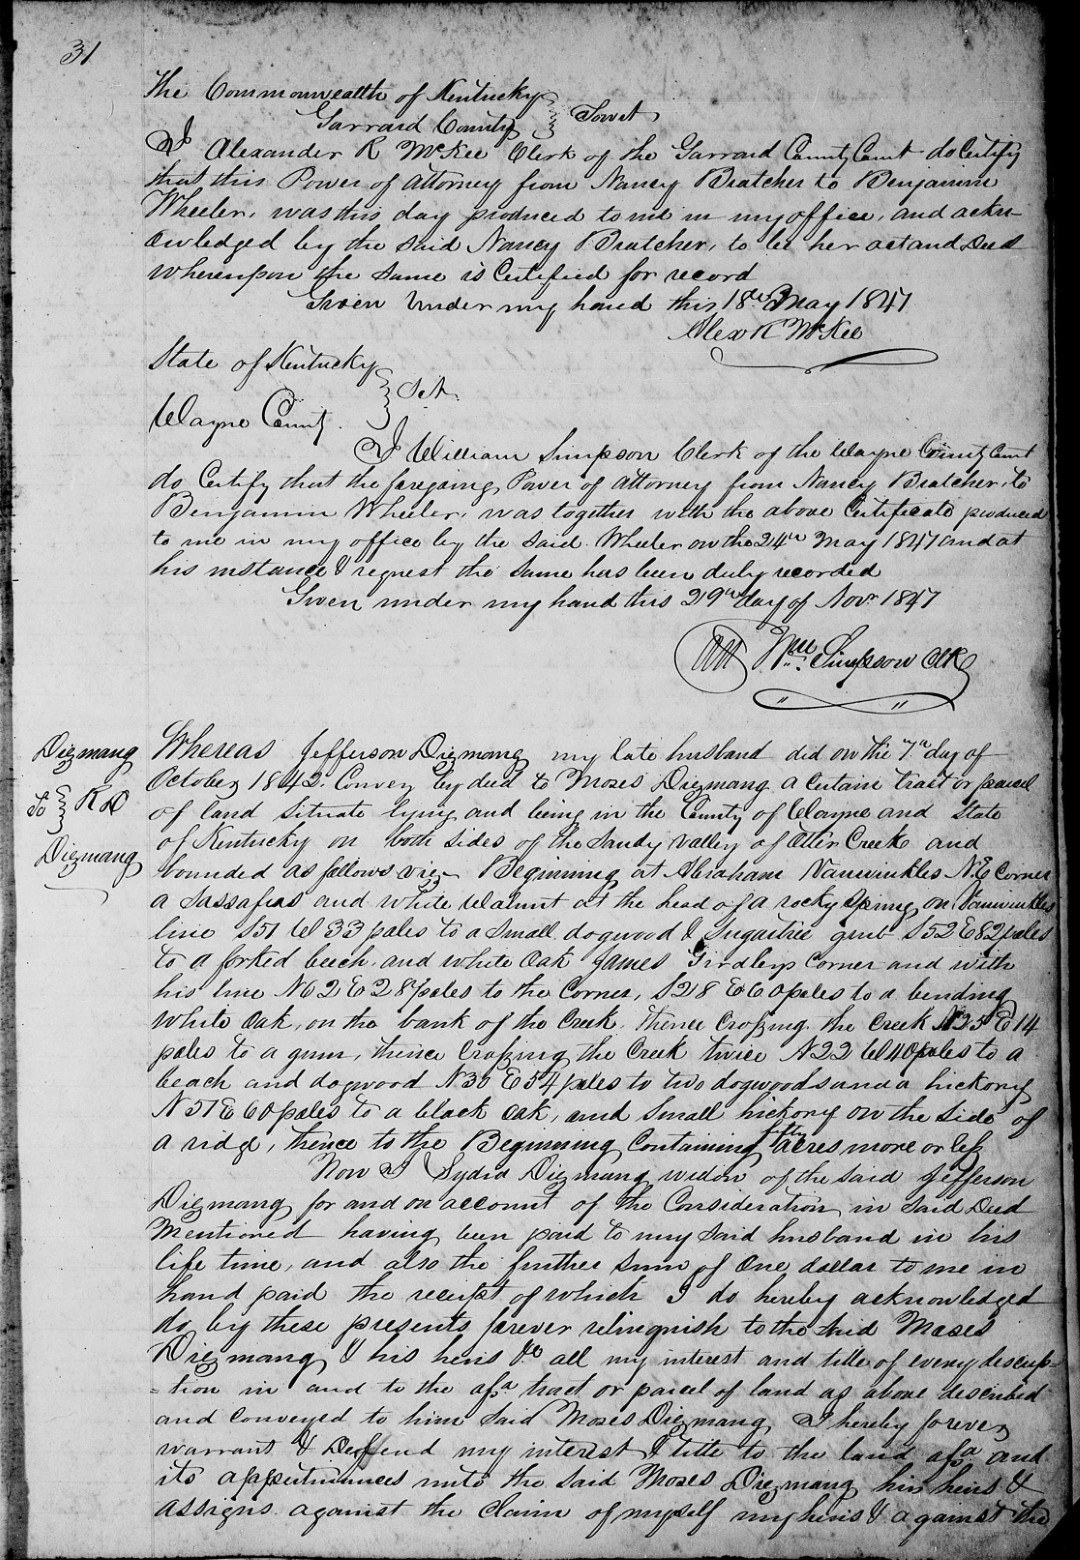 31
The Commonwealth of Kentucky
Garrard County } Towit
I Alexander R McKee Clerk of the Garrard County Court do Certify
that this Power of Attorney from Nancy Bratcher to Benjamin
Wheeler, was this day produced to me in my office, and ackn-
owledged by the said Nancy Bratcher, to be her act and deed
whereupon the same is Certified for record
Given under my hand this 18th May 1847
Alex R McKee
State of Kentucky
Wayne County. } Sct.
I William Simpson Clerk of the Wayne County Court
do Certify that the foregoing Power of Attorney from Nancy Bratcher, to
Benjamin Wheeler, was together with the above Certificate produced
to me in my office by the said Wheeler on the 24th May 1847 and at
his instance & request the same has been duly recorded
Given under my hand this 29th day of Novr 1847
Att Wm Simpson Clk
Dizmang
To } R D
Dizmang
Whereas Jefferson Dizmang my late husband did on the 7th day of
October 1842. Convey by deed to Moses Dizmang a certain tract or parcel
of land situate lying and being in the County of Wayne and State
of Kentucky on both sides of the Sandy valley of Otter Creek and
bounded as follows viz- Beginning at Abraham Vanwinkles N.E Corner
a Sassafras and white Walnut at the head of a rocky Spring on Vanwinkles
line S51 W 33 poles to a small dogwood & Sugartree grub S52 E 82 poles
to a forked beech and white Oak James Girdleys Corner and with
his line N62 E 28 poles to the Corner, S28 E 60 poles to a bending
White Oak, on the bank of the Creek. Thence Crossing the Creek N25 E 14
poles to a gum, thence Crossing the Creek twice N22 W 40 poles to a
beach and dogwood N30 E 54 poles to two dogwoods and a hickory
N51 E 60 poles to a black Oak, and small hickory on the side of
a ridge, thence to the Beginning Containing fifty acres more or less
Now I Lydia Dizmang widow of the said Jefferson
Dizmang for and on account of the Consideration in said Deed
Mentioned having been paid to my said husband in his
life time, and also the further sum of One dollar to me in
hand paid the receipt of which I do hereby acknowledged
do by these presents forever relinquish to the said Moses
Dizmang & his heirs &c all my interest and title of every descrip-
-tion in and to the afsd tract or parcel of land as above described
and conveyed to him said Moses Dizmang I hereby forever
warrant & Deffend my interest & title to the land afsd and
its appurtinances unto the said Moses Dizmang his heirs &
assigns against the Claim of myself my heirs & against the